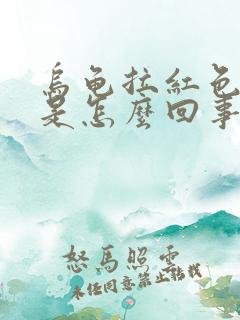 烏龜拉紅色
是怎麼回事
怒馬照雲
未经同意禁止转载